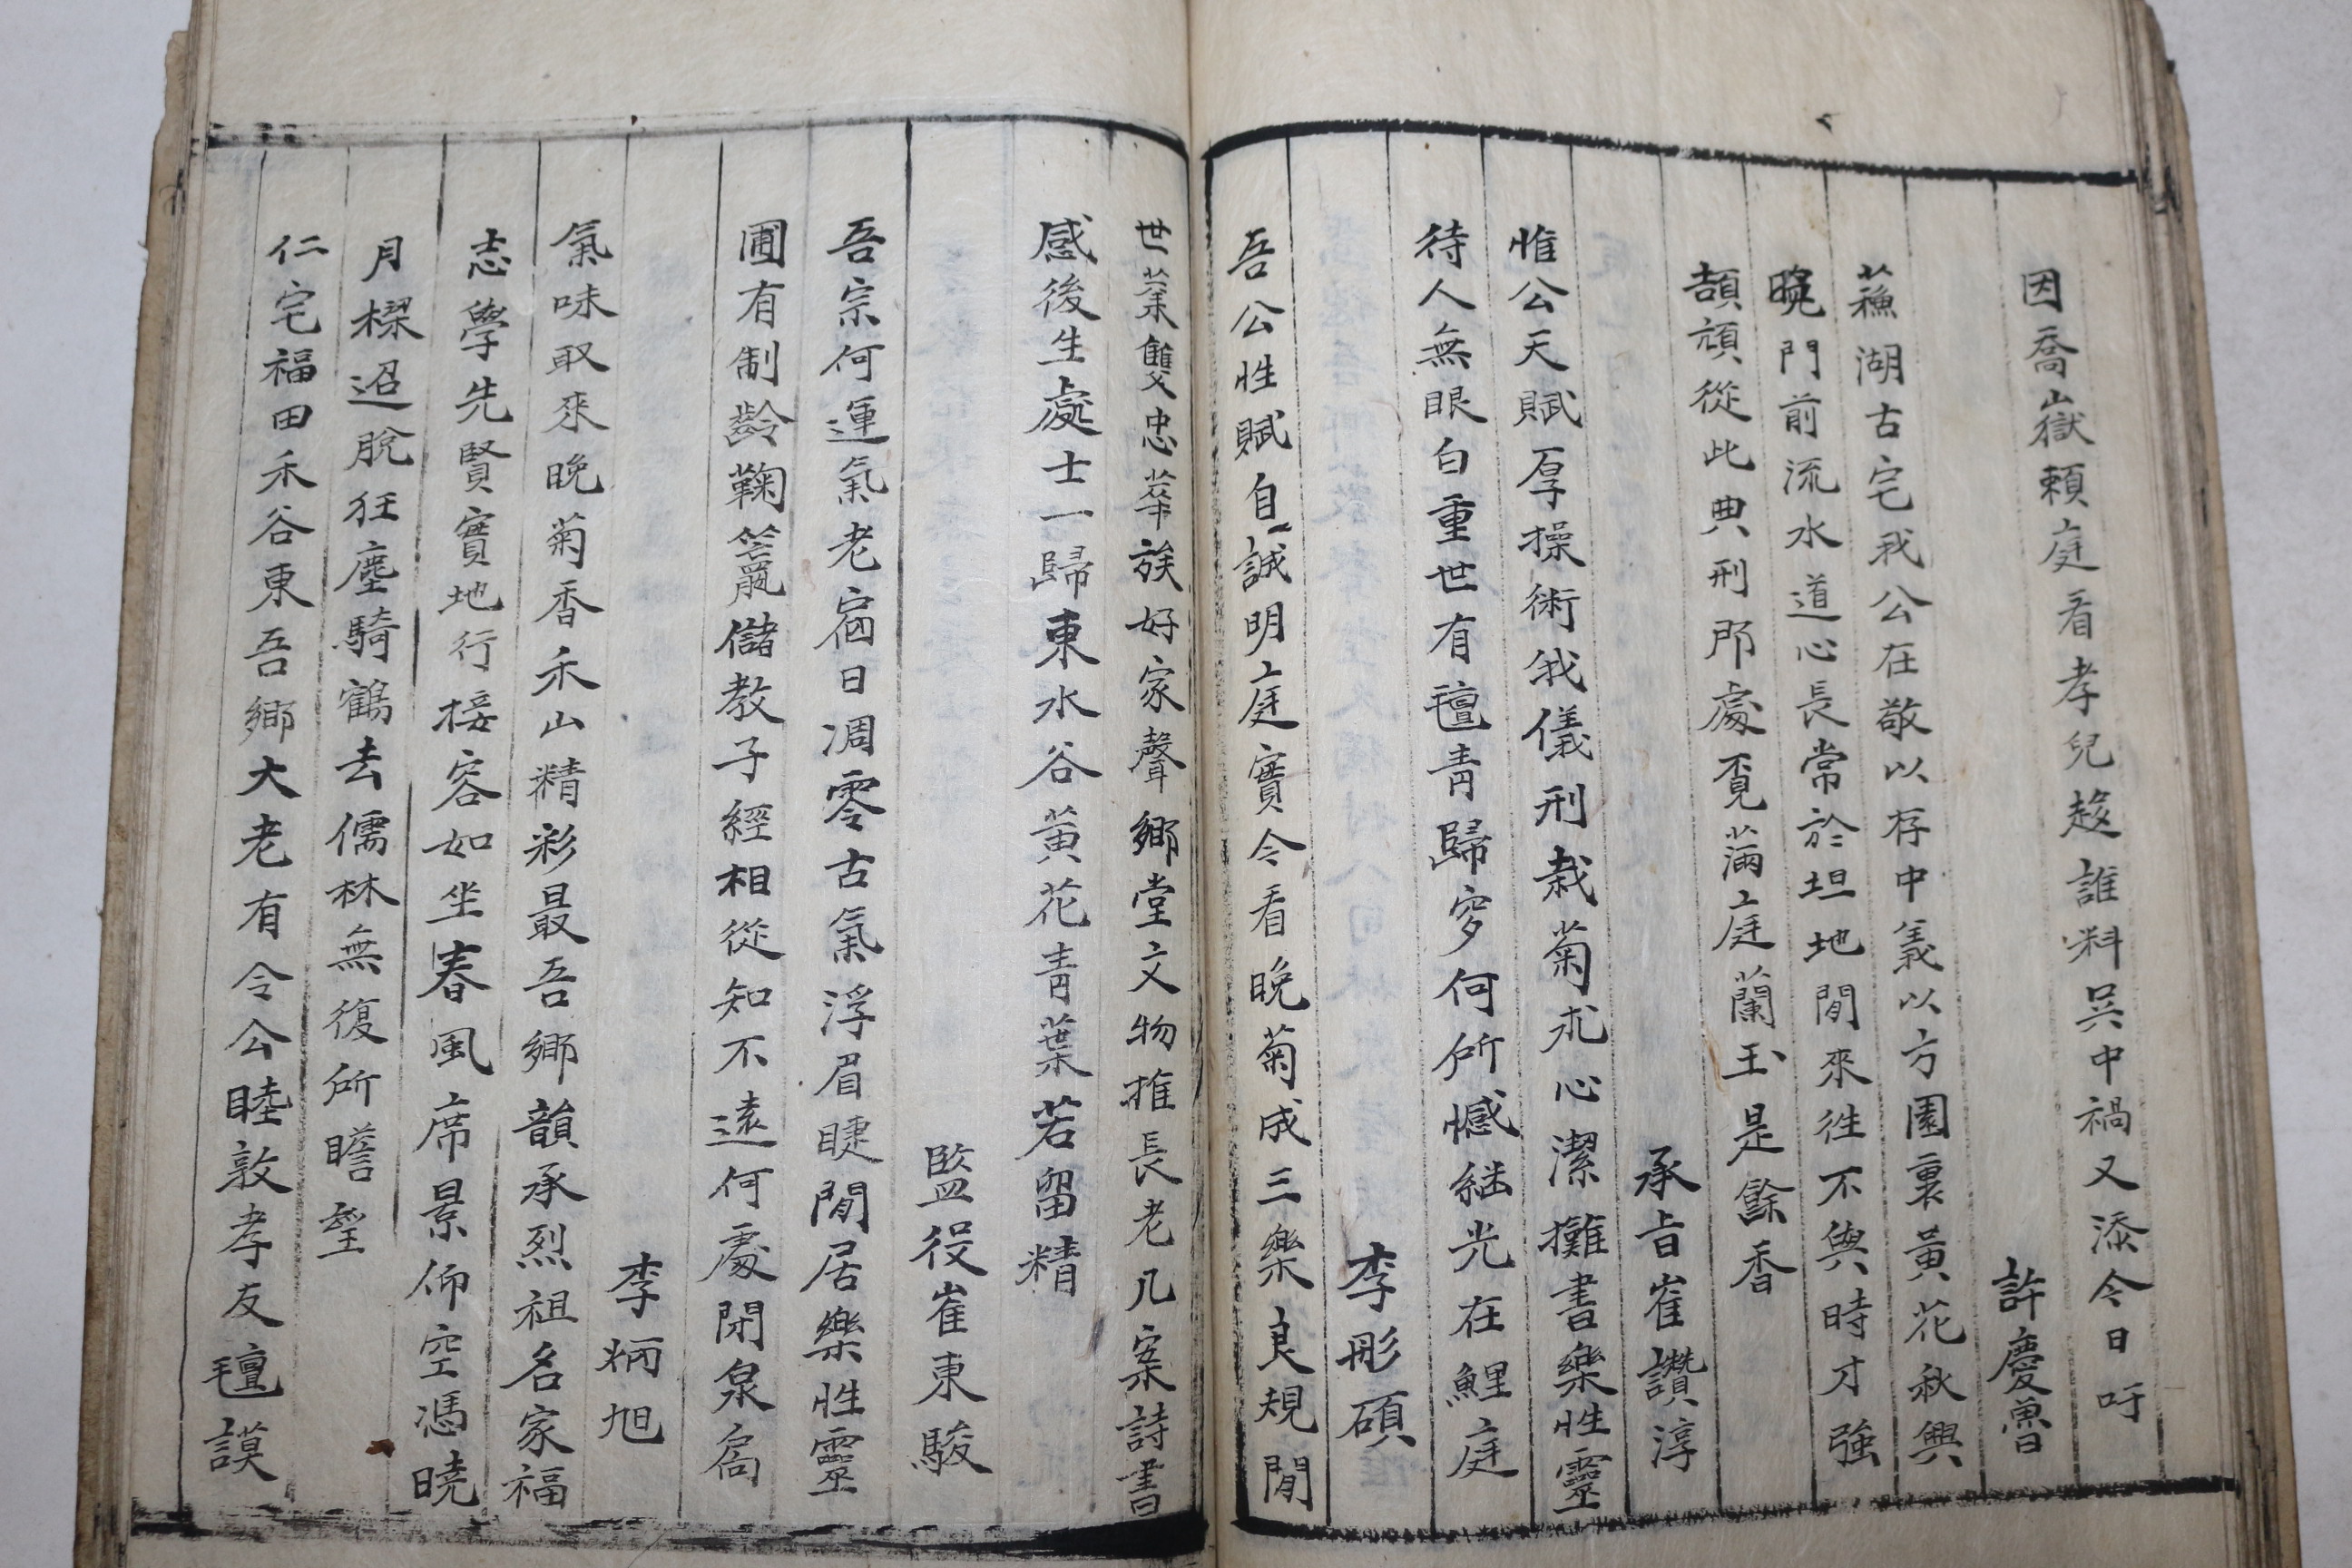 因喬嶽頼庭看孝兒趍誰料吳中禍又添今日吁
許慶魯
蘓湖古宅我公在敬以存中義以方園裏黃花秋興
晩門前流水道心長常於坦地閒來徃不與時才強
頡頏從此典刑邢處覔滿庭蘭玉是餘香
承旨崔讚淳
惟公天賦厚操術我儀刑栽菊朮心潔攤書樂性靈
待人無眼白重世有氊青歸穸何所憾継光在鯉庭
李彤碩
吾公性賦自誠明庭實令看晩菊成三樂良規閒
世業雙忠華族好家聲鄉堂文物推長老几案詩書
感後生處士一歸東水谷黃花青葉若留精
監役崔東駿
吾宗何運氣老宿日凋零古氣浮眉睫閒居樂性靈
圃有制齡鞠籯儲教子經相從知不遠何處閉泉扃
李炳旭
氣味取來晩菊香禾山精彩最吾鄉韻承烈祖名家福
志學先賢實地行接容如坐春風席景仰空憑曉
月樑迢脫狂塵騎鶴去儒林無復所瞻望
仁宅福田禾谷東吾鄉大老有令公睦敦孝友氊謨